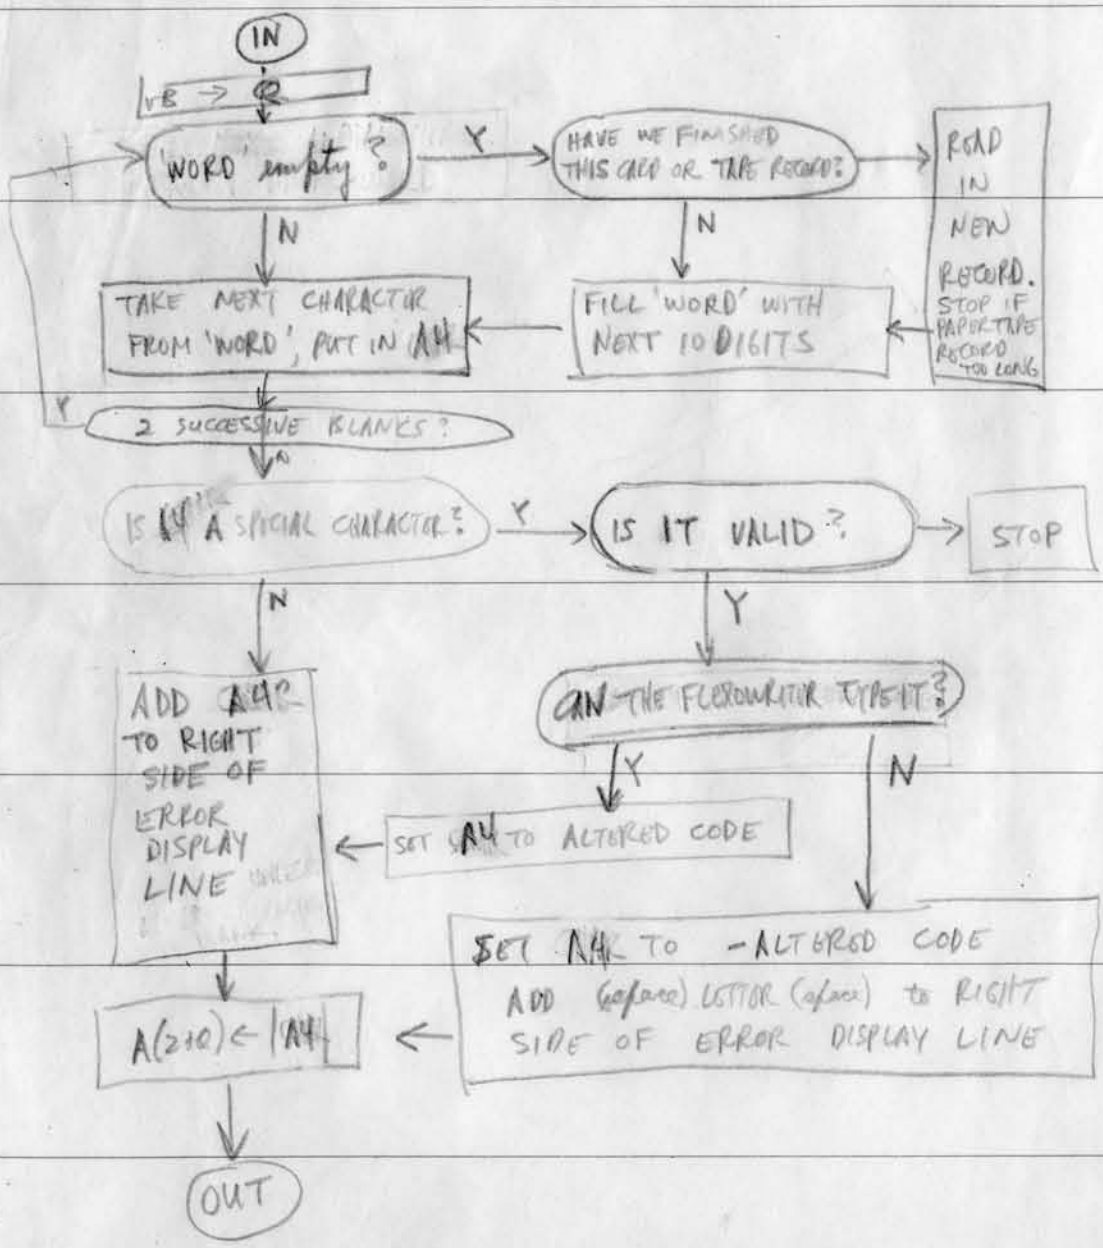 IN
rB → Q
'WORD' empty?
Y
HAVE WE FINISHED
THIS CARD OR TAPE RECORD?
READ
IN
NEW
RECORD.
STOP IF
PAPERTAPE
RECORD
TOO LONG
N
N
TAKE NEXT CHARACTOR
FROM 'WORD', PUT IN A4
FILL 'WORD' WITH
NEXT 10 DIGITS
Y
2 SUCCESSIVE BLANKS?
N
IS A4 A SPECIAL CHARACTER?
Y
IS IT VALID?
STOP
N
Y
CAN THE FLEXOWRITER TYPE IT?
ADD A4
TO RIGHT
SIDE OF
ERROR
DISPLAY
LINE
Y
N
SET A4 TO ALTERED CODE
SET A4 TO -ALTERED CODE
ADD (space) LETTER (space) to RIGHT
SIDE OF ERROR DISPLAY LINE
A(2+Q) ← |A4|
OUT